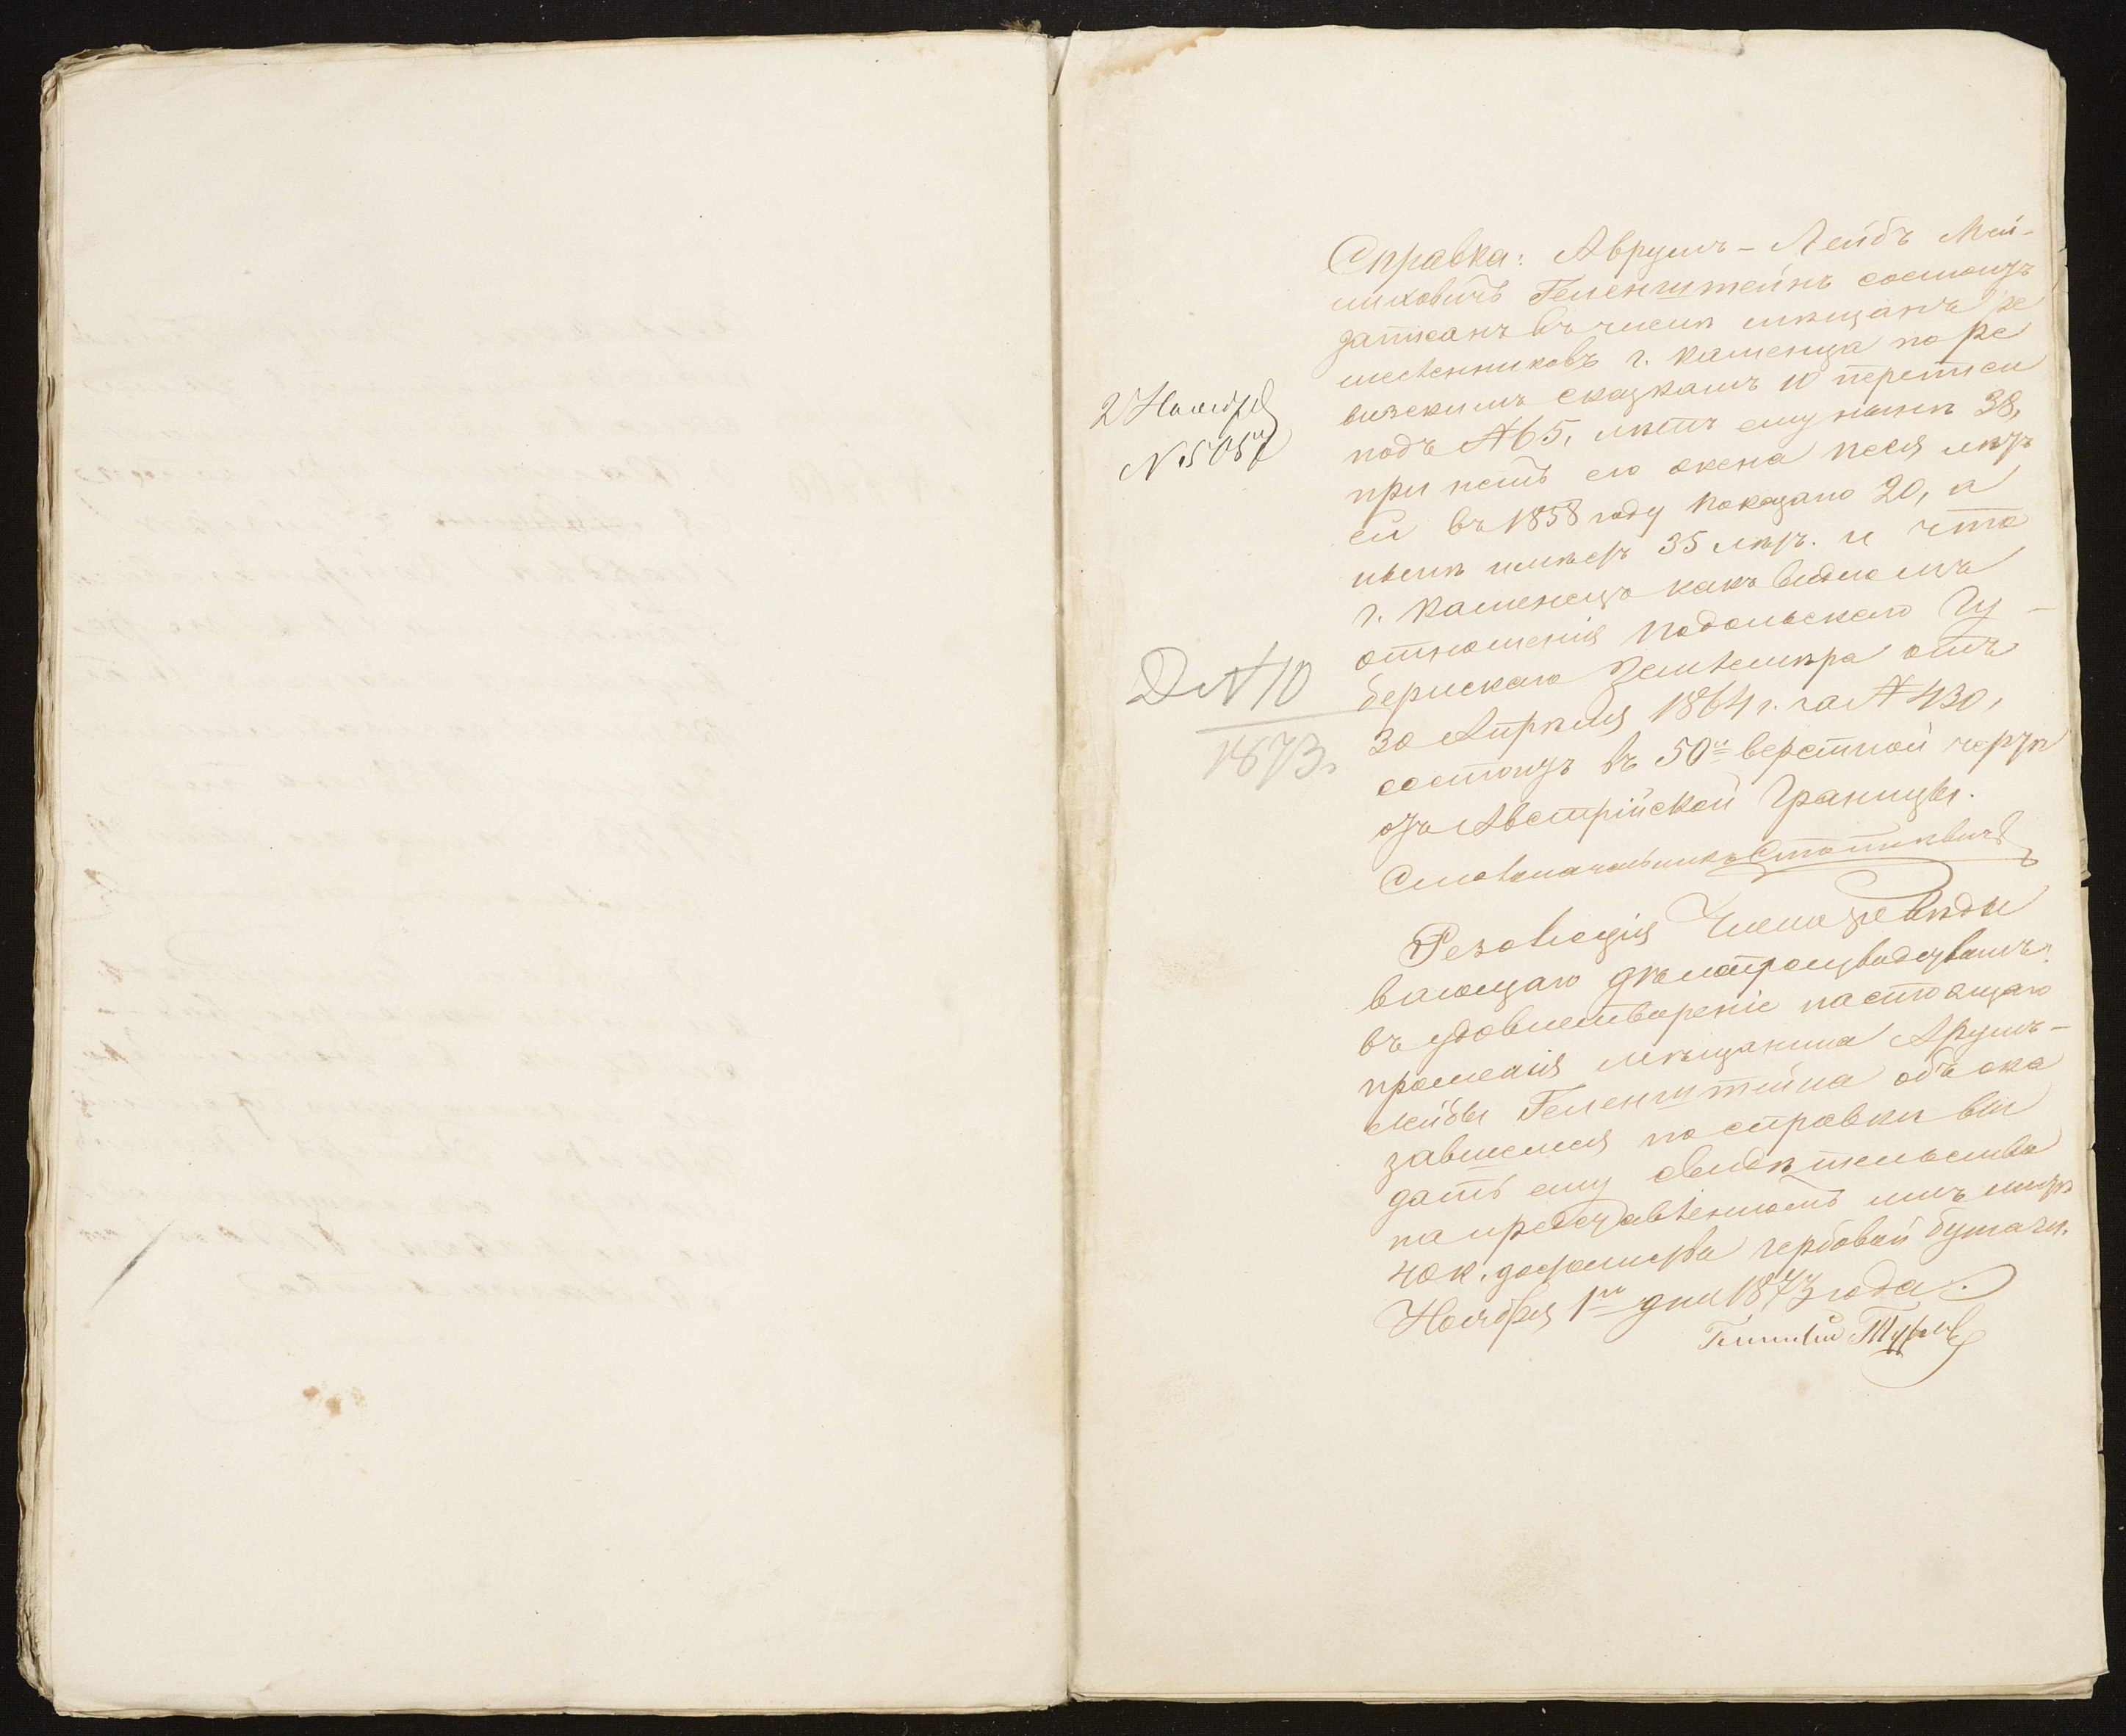 Справка: Аврумъ-Лейбъ Мей-
лиховичъ Геленштейнъ состоитъ
записанъ въ числѣ мѣщанъ ре
месленниковъ г. Каменца по ре
визскимъ сказкамъ 10 переписи
подъ №65, лѣтъ ему нынѣ 38,
при немъ его жена Песя лѣтъ
ей въ 1858 году показано 20, а
нынѣ имѣетъ 35 лѣтъ. и что
г. Каменецъ какъ видно изъ
отношенія Подольскаго Гу-
бернскаго Землемѣра отъ
30 Апрѣля 1864 г. за №430,
состоитъ въ 50и верстной чертѣ
отъ Австрійской Границы.
Столоначальникъ
2 Ноября
№5057
Д №10
1873.
Резолюція Члена завѣды
вающаго дѣлопроизводствомъ:
въ удовлетвореніе настоящаго
прошенія мѣщанина Арумъ-
Лейбы Геленштейна объ ока
завшемся по справкѣ вы
дать ему свидѣтельство
на представленномъ имъ листѣ
40 к. достоинства гербовой бумаги.
Ноября 1го дня 1873 года.